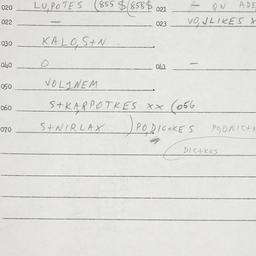 020 LU,POTES (855 $(858$ 021 — QN ADE
022 — 023 VO,JLIKES X
030 KALO,S+N
040 O 041 —
050 VOL1NEM
060 S+KARPOTKES xx (056
070 S+NIRLAX ) PO,DIC+KES
DIC+KES